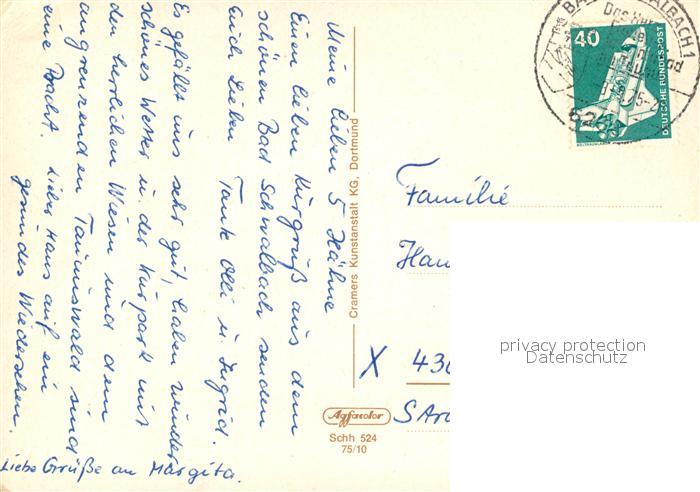 Meine lieben 5 Hähne
Einen lieben Kurgruß aus dem
schönen Bad Schwalbach senden
Euch Lieben Tante Olli u. Ingrid.
Es gefällt uns sehr gut, haben wunder
schönes Wetter u. der Kurpark mit
den herrlichen Wiesen und dem
angrenzenden Taunuswald sind
eine Pracht. Lieber Hans auf ein
gesundes Wiedersehen.
Liebe Grüße an Margita.
Cramers Kunstanstalt KG, Dortmund
Agfacolor
Schh 524
75/10
40
DEUTSCHE BUNDESPOST
ALBACH 1
Das Her
Familie
Han
X 430
privacy protection
Datenschutz